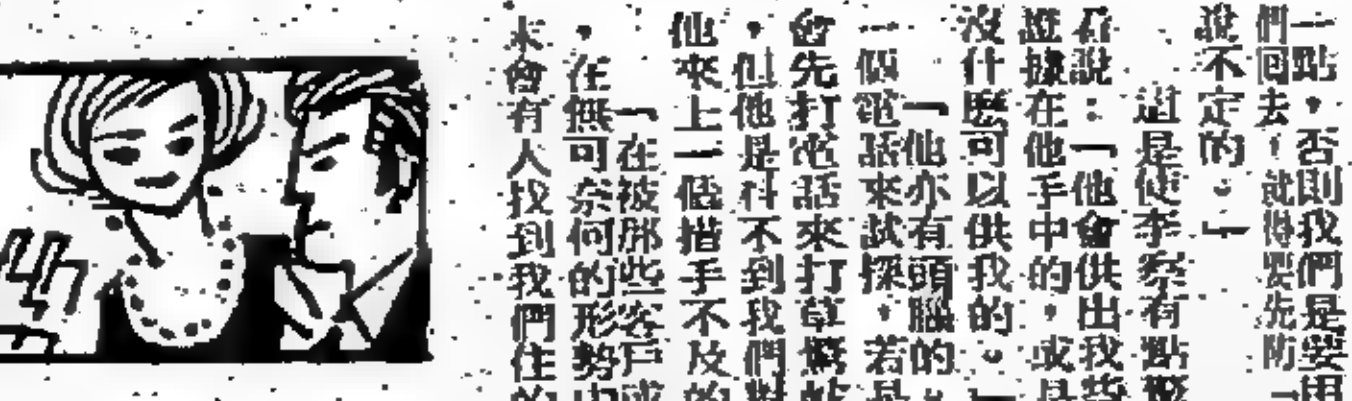 一點，否則我們是要用
們回去！就得要先防「
說不定的。」
這是使李察有點驚
着說：「他會供出我
證據在他手中的，或是
沒什麼可以供我的。」
「他亦有頭腦的。
一個電話來試探，若是
會先打電話來打草驚蛇
，但他是料不到我們對
他來上一個措手不及的
「在被那些客戶或
，在無可奈何的形勢中
未會有人找到我們住的